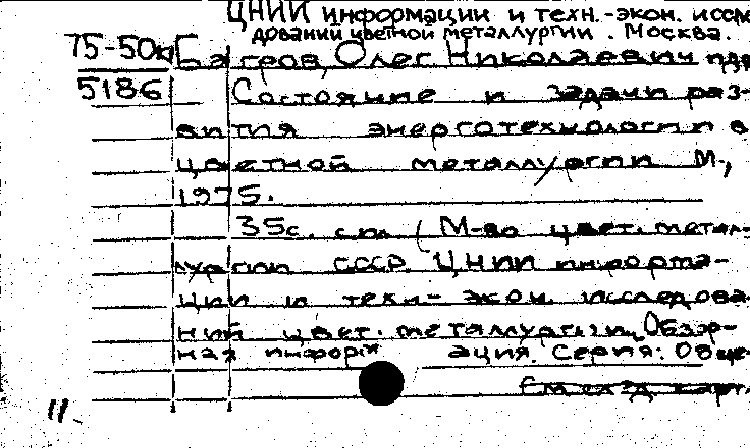 ЦНИИ информации и техн.-экон. иссле
довании цветной металлургии. Москва.
75-50к Багров, Олег Николаевич
5186 Состояние и задачи раз-
вития энерготехнологии в
цветной металлургии М.,
1975.
35с. с ил. (М-во цвет. метал-
лургии СССР. ЦНИИ информа-
ции и техн.- экон. исследова
ний цвет. металлургии, Обзор-
ная информ ация. Серия: Обще
11